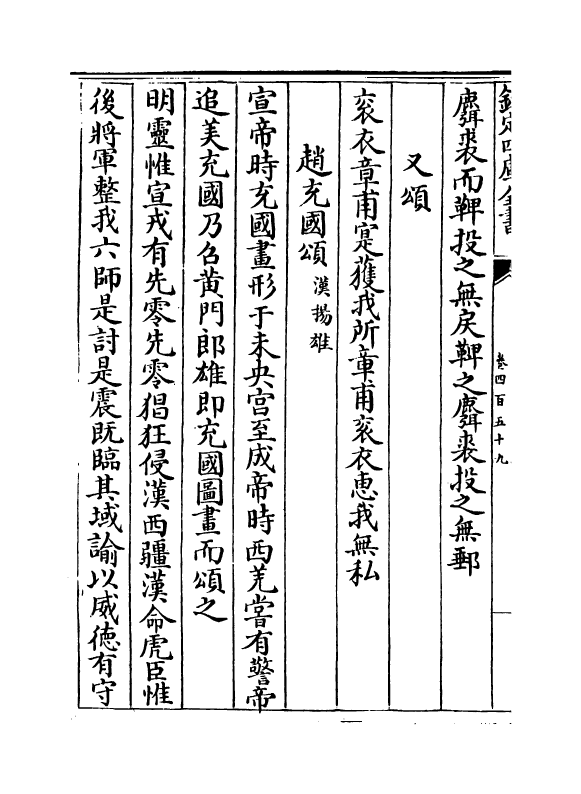 欽定四庫全書
卷四百五十九
麛裘而鞞投之無戾鞞之麛裘投之無郵
又頌
衮衣章甫寔獲我所章甫衮衣惠我無私
趙充國頌 漢揚雄
宣帝時充國畫形于未央宫至成帝時西羌嘗有警帝
追美充國乃召黄門郎雄即充國圖畫而頌之
明靈惟宣戎有先零先零猖狂侵漢西疆漢命虎臣惟
後將軍整我六師是討是震既臨其域諭以威徳有守